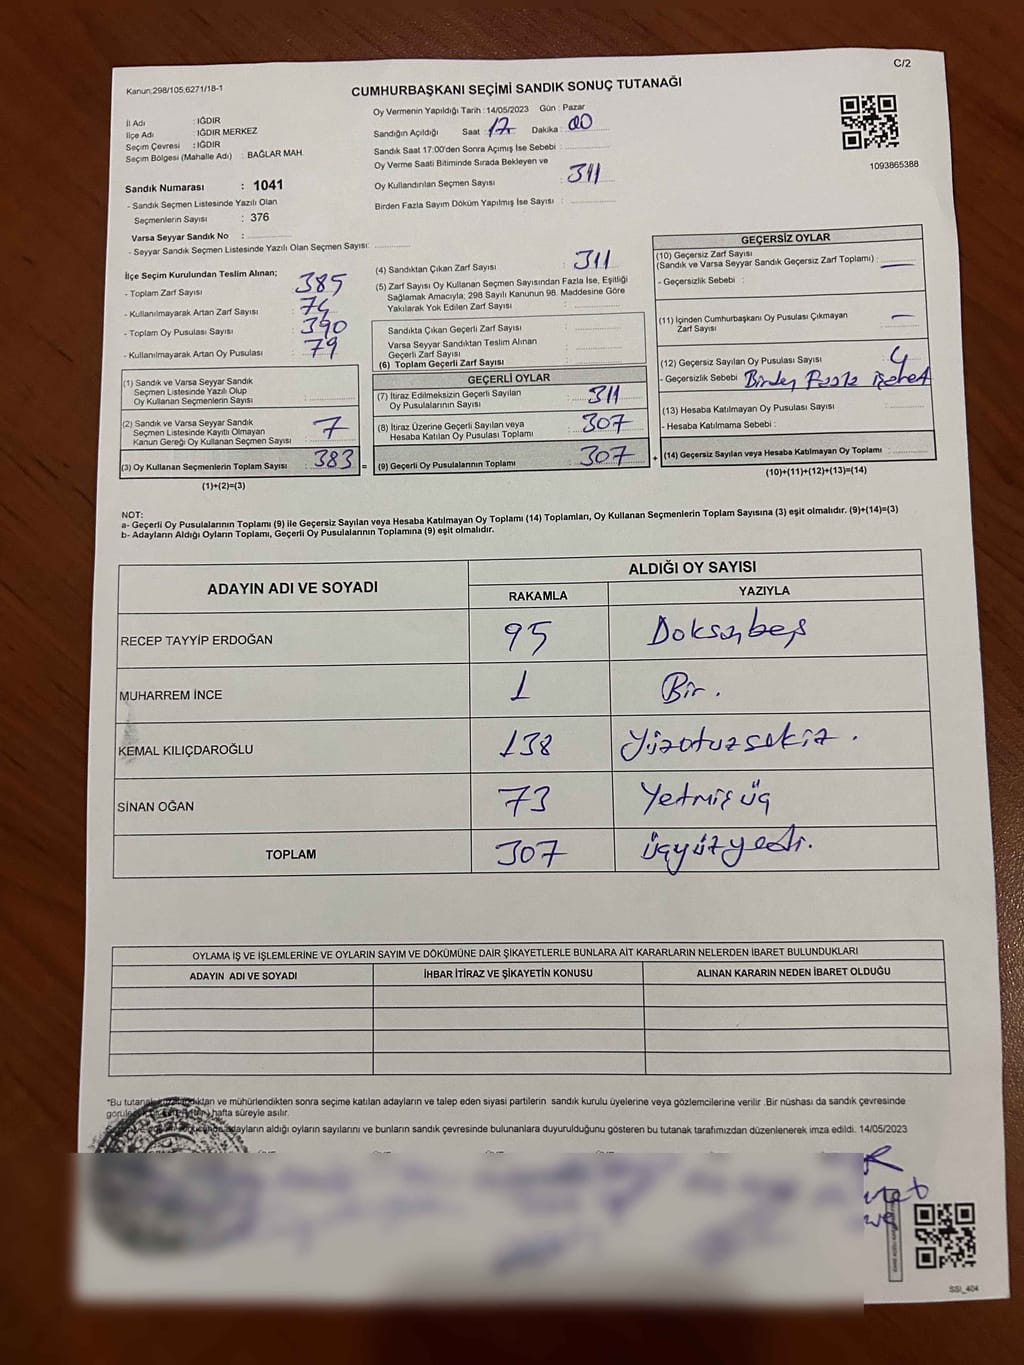 C/2
Kanun:298/105,6271/18-1
CUMHURBAŞKANI SEÇİMİ SANDIK SONUÇ TUTANAĞI
İl Adı : IĞDIR
İlçe Adı : IĞDIR MERKEZ
Seçim Çevresi : IĞDIR
Seçim Bölgesi (Mahalle Adı) : BAĞLAR MAH.
Oy Vermenin Yapıldığı Tarih : 14/05/2023 Gün : Pazar
Sandığın Açıldığı Saat : 17 Dakika : 00
Sandık Saat 17:00'den Sonra Açımış İse Sebebi :
Oy Verme Saati Bitiminde Sırada Bekleyen ve
Oy Kullandırılan Seçmen Sayısı : 311
Birden Fazla Sayım Döküm Yapılmış İse Sayısı :
1093865388
Sandık Numarası : 1041
- Sandık Seçmen Listesinde Yazılı Olan
Seçmenlerin Sayısı : 376
Varsa Seyyar Sandık No :
- Seyyar Sandık Seçmen Listesinde Yazılı Olan Seçmen Sayısı:
İlçe Seçim Kurulundan Teslim Alınan;
- Toplam Zarf Sayısı : 385
- Kullanılmayarak Artan Zarf Sayısı : 74
- Toplam Oy Pusulası Sayısı : 390
- Kullanılmayarak Artan Oy Pusulası : 79
(1) Sandık ve Varsa Seyyar Sandık
Seçmen Listesinde Yazılı Olup
Oy Kullanan Seçmenlerin Sayısı :
(2) Sandık ve Varsa Seyyar Sandık
Seçmen Listesinde Kayıtlı Olmayan
Kanun Gereği Oy Kullanan Seçmen Sayısı : 7
(3) Oy Kullanan Seçmenlerin Toplam Sayısı : 383 =
(1)+(2)=(3)
(4) Sandıktan Çıkan Zarf Sayısı : 311
(5) Zarf Sayısı Oy Kullanan Seçmen Sayısından Fazla İse, Eşitliği
Sağlamak Amacıyla; 298 Sayılı Kanunun 98. Maddesine Göre
Yakılarak Yok Edilen Zarf Sayısı :
Sandıkta Çıkan Geçerli Zarf Sayısı :
Varsa Seyyar Sandıktan Teslim Alınan
Geçerli Zarf Sayısı :
(6) Toplam Geçerli Zarf Sayısı :
GEÇERLİ OYLAR
(7) İtiraz Edilmeksizin Geçerli Sayılan
Oy Pusulalarının Sayısı : 311
(8) İtiraz Üzerine Geçerli Sayılan veya
Hesaba Katılan Oy Pusulası Toplamı : 307
(9) Geçerli Oy Pusulalarının Toplamı : 307 +
GEÇERSİZ OYLAR
(10) Geçersiz Zarf Sayısı
(Sandık ve Varsa Seyyar Sandık Geçersiz Zarf Toplamı) : —
- Geçersizlik Sebebi :
(11) İçinden Cumhurbaşkanı Oy Pusulası Çıkmayan
Zarf Sayısı : —
(12) Geçersiz Sayılan Oy Pusulası Sayısı : 4
- Geçersizlik Sebebi : Birden Fazla işaret
(13) Hesaba Katılmayan Oy Pusulası Sayısı :
- Hesaba Katılmama Sebebi :
(14) Geçersiz Sayılan veya Hesaba Katılmayan Oy Toplamı :
(10)+(11)+(12)+(13)=(14)
NOT:
a- Geçerli Oy Pusulalarının Toplamı (9) ile Geçersiz Sayılan veya Hesaba Katılmayan Oy Toplamı (14) Toplamları, Oy Kullanan Seçmenlerin Toplam Sayısına (3) eşit olmalıdır. (9)+(14)=(3)
b- Adayların Aldığı Oyların Toplamı, Geçerli Oy Pusulalarının Toplamına (9) eşit olmalıdır.
ADAYIN ADI VE SOYADI
ALDIĞI OY SAYISI
RAKAMLA YAZIYLA
RECEP TAYYİP ERDOĞAN 95 Doksanbeş
MUHARREM İNCE 1 Bir.
KEMAL KILIÇDAROĞLU 138 Yüzotuzsekiz.
SİNAN OĞAN 73 Yetmiş üç
TOPLAM 307 üçyüzyedi.
OYLAMA İŞ VE İŞLEMLERİNE VE OYLARIN SAYIM VE DÖKÜMÜNE DAİR ŞİKAYETLERLE BUNLARA AİT KARARLARIN NELERDEN İBARET BULUNDUKLARI
ADAYIN ADI VE SOYADI İHBAR İTİRAZ VE ŞİKAYETİN KONUSU ALINAN KARARIN NEDEN İBARET OLDUĞU
*Bu tutanak ve mühürlendikten sonra seçime katılan adayların ve talep eden siyasi partilerin sandık kurulu üyelerine veya gözlemcilerine verilir .Bir nüshası da sandık çevresinde
hafta süreyle asılır.
adayların aldığı oyların sayılarını ve bunların sandık çevresinde bulunanlara duyurulduğunu gösteren bu tutanak tarafımızdan düzenlenerek imza edildi. 14/05/2023
SSI_404